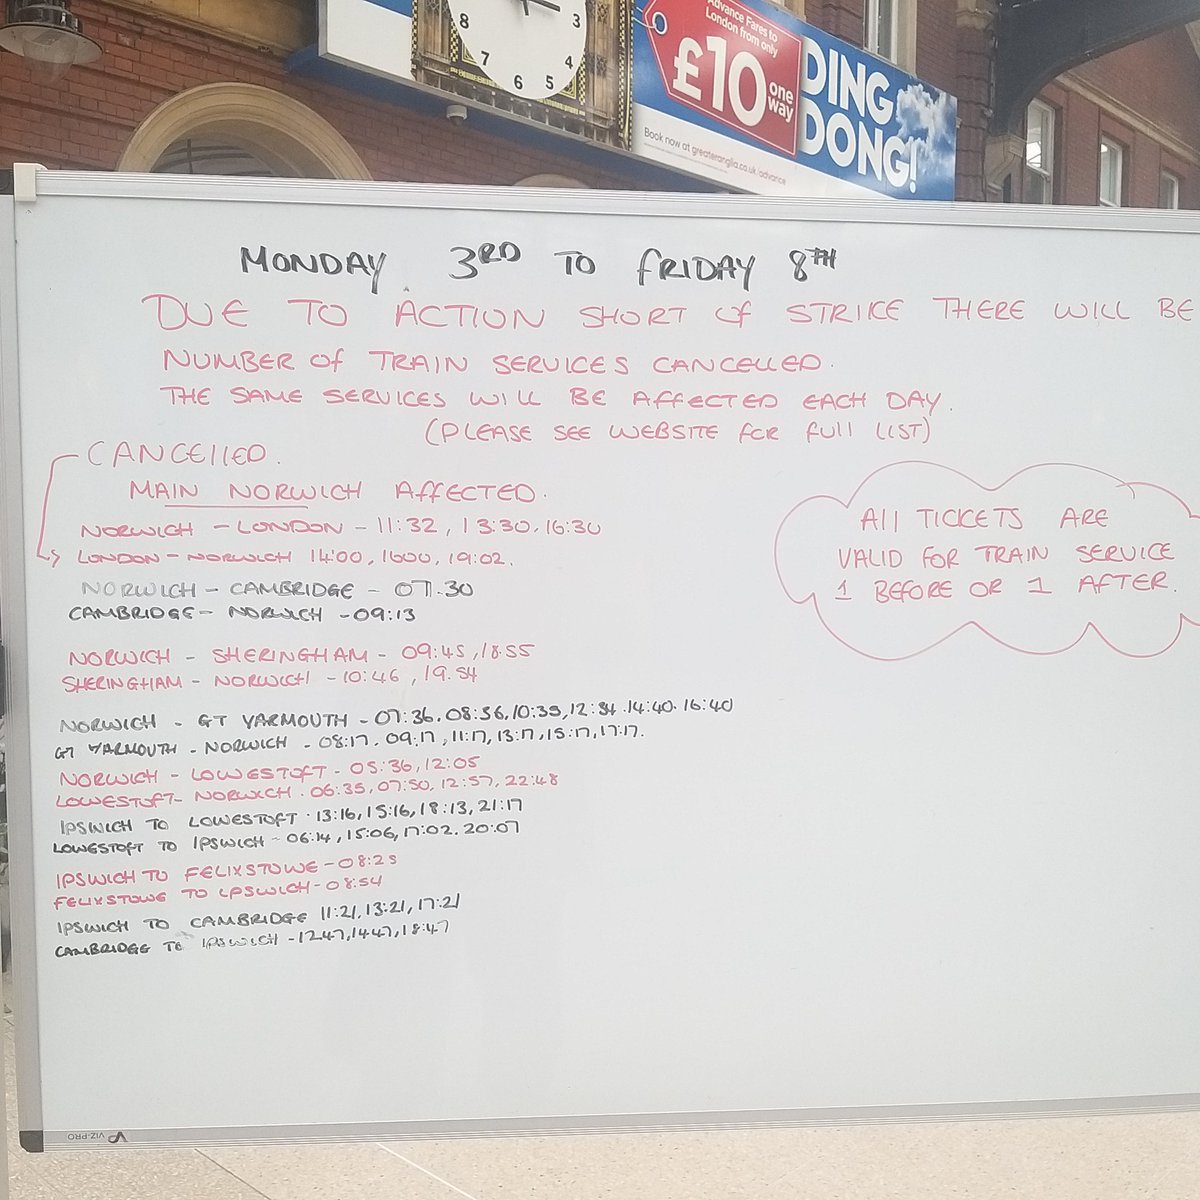 8
3
7
4
6
5
Advance Fares to
London from only
£10 one way
Book now at greateranglia.co.uk/advance
DING
DONG!
MONDAY 3RD TO FRIDAY 8TH
DUE TO ACTION SHORT OF STRIKE THERE WILL BE
NUMBER OF TRAIN SERVICES CANCELLED.
THE SAME SERVICES WILL BE AFFECTED EACH DAY.
(PLEASE SEE WEBSITE FOR FULL LIST)
CANCELLED.
MAIN NORWICH AFFECTED.
NORWICH - LONDON - 11:32, 13:30. 16:30
LONDON - NORWICH 14:00, 1600, 19:02.
NORWICH - CAMBRIDGE - 07.30
CAMBRIDGE - NORWICH - 09:13
NORWICH - SHERINGHAM - 09:45, 18:55
SHERINGHAM - NORWICH - 10:46, 19.54
NORWICH - GT YARMOUTH - 07:36. 08:36, 10:35, 12:34. 14:40. 16:40
GT YARMOUTH - NORWICH - 08:17. 09:17, 11:17, 13:17, 15:17, 17:17.
NORWICH - LOWESTOFT - 05:36, 12:05
LOWESTOFT - NORWICH. 06:35, 07:50, 12:57, 22:48
IPSWICH TO LOWESTOFT. 13:16, 15:16, 18:13, 21:17
LOWESTOFT TO IPSWICH - 06:14, 15:06, 17:02. 20:07
IPSWICH TO FELIXSTOWE - 08:25
FELIXSTOWE TO IPSWICH - 08:54
IPSWICH TO CAMBRIDGE 11:21, 13:21, 17:21
CAMBRIDGE TO IPSWICH - 1247, 1447, 18:47
All TICKETS ARE
VALID FOR TRAIN SERVICE
1 BEFORE OR 1 AFTER.
VIZ-PRO